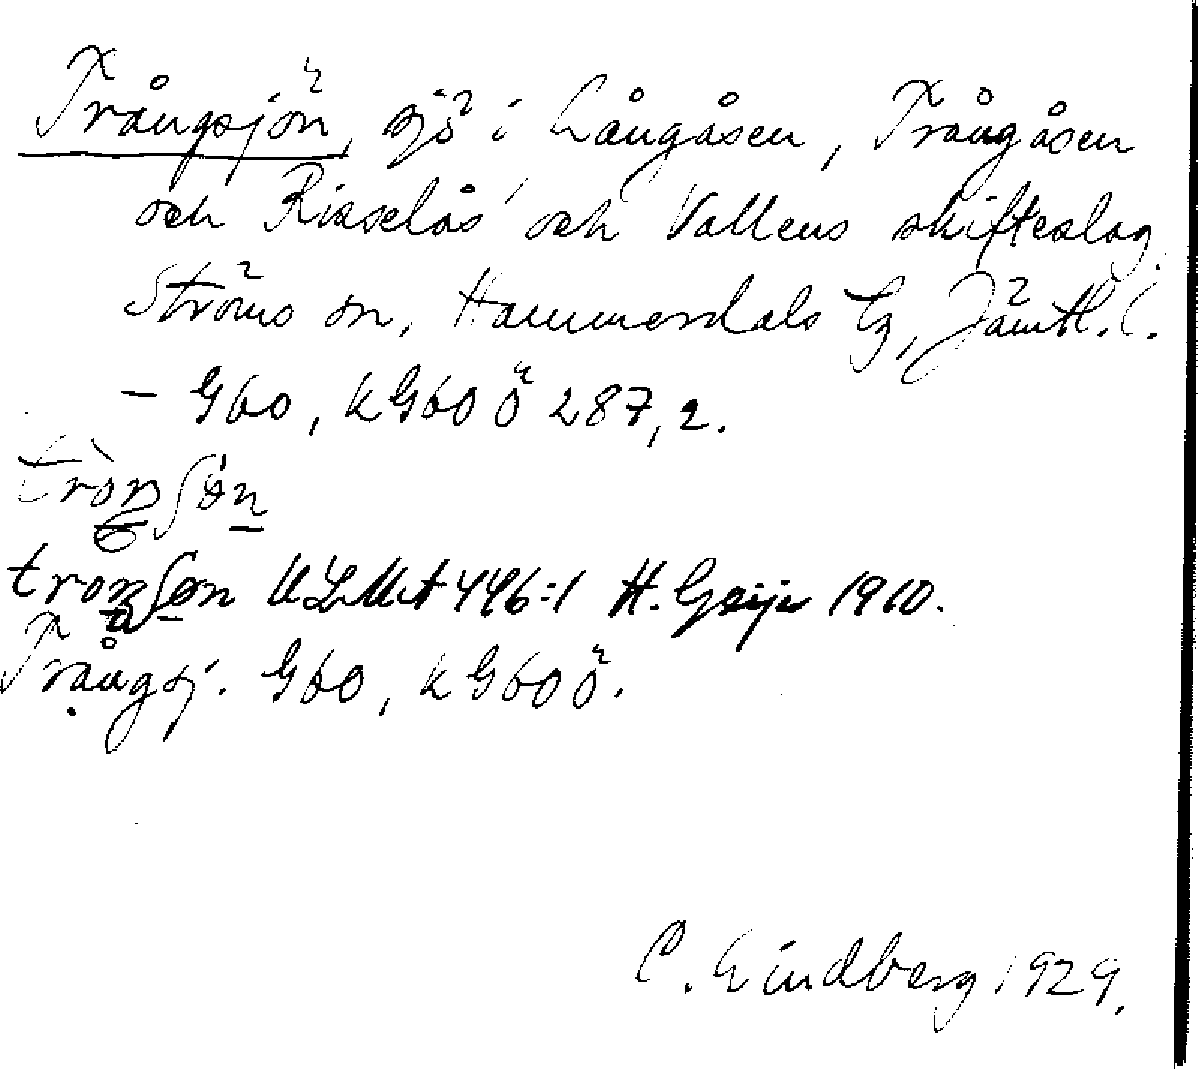 Trångsjön, sjö i Långåsen, Trångåsen
och Risselås och Vallens skifteslag.
Ströms sn, Hammerdals tg, Jämtl. l.
– Gbo, kGboÖ 287,2.
tròŋʃön
troŋʃøn ULMA 446:1 H. Geijer 1910.
Trångsj. Gbo, kGboÖ.
C. Lindberg 1929.